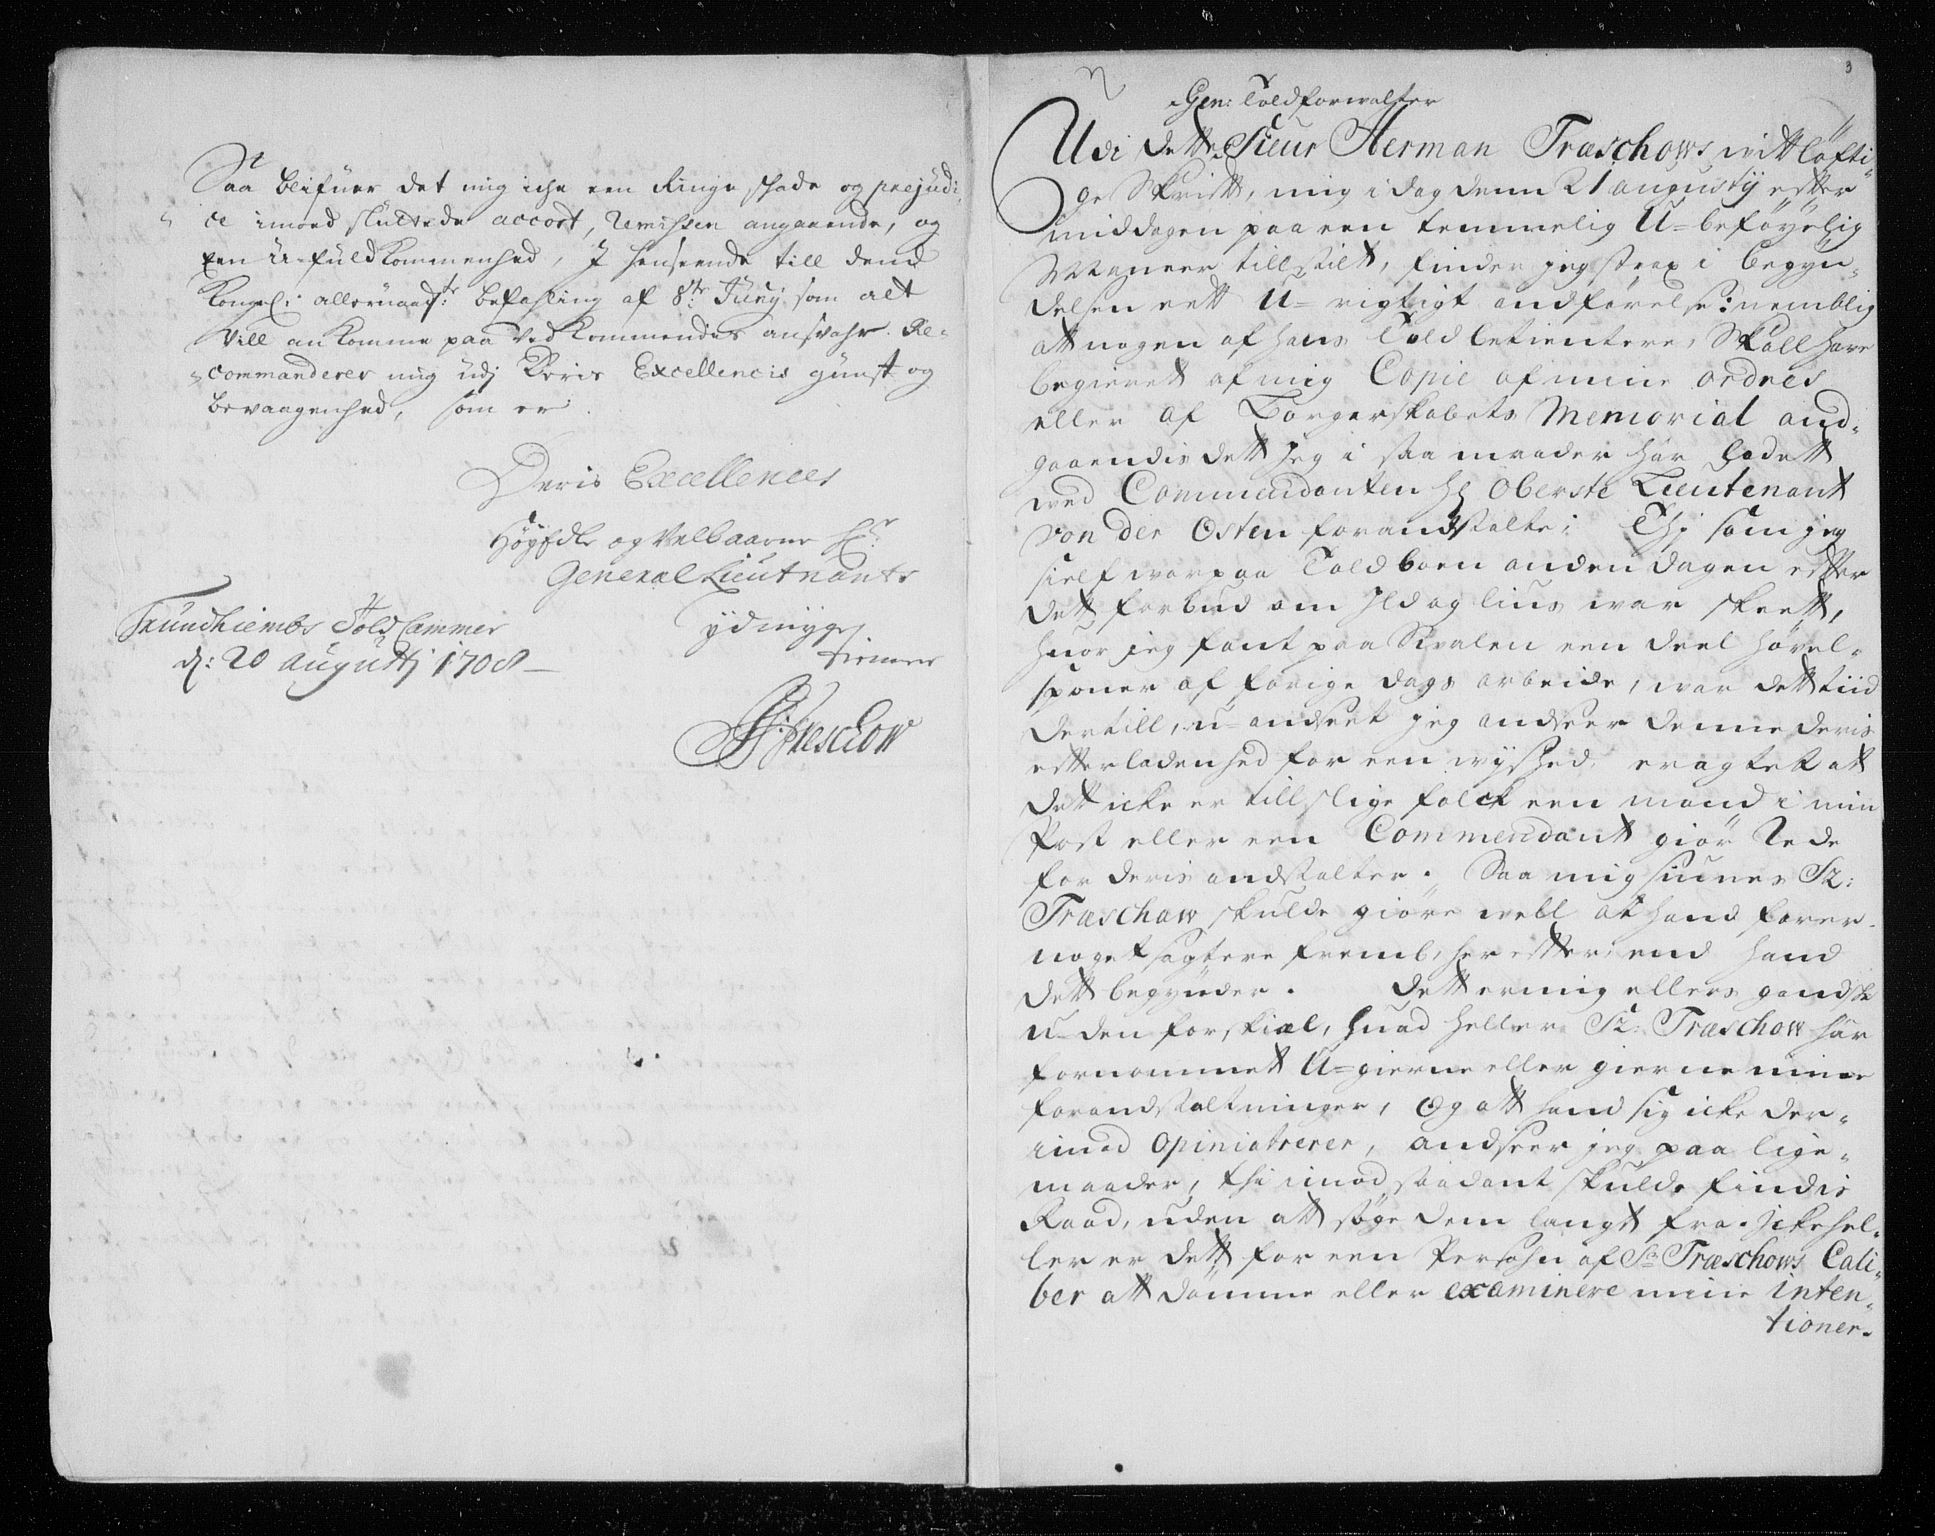 Saa blifuer det mig iche een Ringe schade og prejudi-
ce imood sluttede accort, Remissen angaaende, og
Een U-fuldkommenhed, J henseende till dend
Kongel: allernaad:ste befahling af 8:de Junij som alt
Vill ankomme paa Vedkommendes ansvahr. Re-
commanderer mig udj Deris Excellencis gunst og
bevaagenhed, som er
Deris Excellences
Høyædle og Velbaarne Hr:
General Lieutnants
Trundhiembs Told Cammer
d: 20 Augustj 1708
ydmyge
tienner
H: Treschow
3
Gen: Toldforwalter
Udi dette Sieur Herman Træschows vittløfti-
ge Skrift, mig i dag denn 21 augustij efter
middagen paa een temmelig U=beføyelig
Maneer tillstilt, finder jeg strax i begyn-
delsen ett U=rigtigt andførelse: nemblig
att nogen af hans Told betientere, Skall have
begieret af mig Copie af mine ordres
eller af Borgerskabets Memorial and-
gaaendis dett jeg i saa maader har ladett
ved Commendanten Hr Oberste Lieutenant
von der Osten forandstalte; Thj som jeg
sielf war paa Toldboen anden dagen efter
dett forbud om Jld og lius war skeett,
huor jeg fant paa Svalen een deel høvel-
sponer af forige dags arbeide, war dett tiid
dertill, u-andseet jeg andseer denne deris
efterladenhed for een wished, eragtet att
dett icke er till slige folck een mand i min
Post eller een Commendant giør Rede
for deris andstalter. Saa mig siunes Sr:
Træschaw skulde giøre well at hand farer
noget sagtere fremb, herefter end hand
dett begynder. Dett er mig ellers gandske
u-den forskiæl, huad heller Sr: Træschow har
fornommet U=gierne eller gierne mine
forandstaltninger, Og att hand sig icke der-
imod opiniatrerer, andseer jeg paa lige-
maader, thi imod saadant skulde findis
Raad, uden att søge dem langt fra. Jcke hel-
ler er dett for een Persohn af Sr Træschows Cali-
ber att dømme eller examinere mine inten-
tioner.